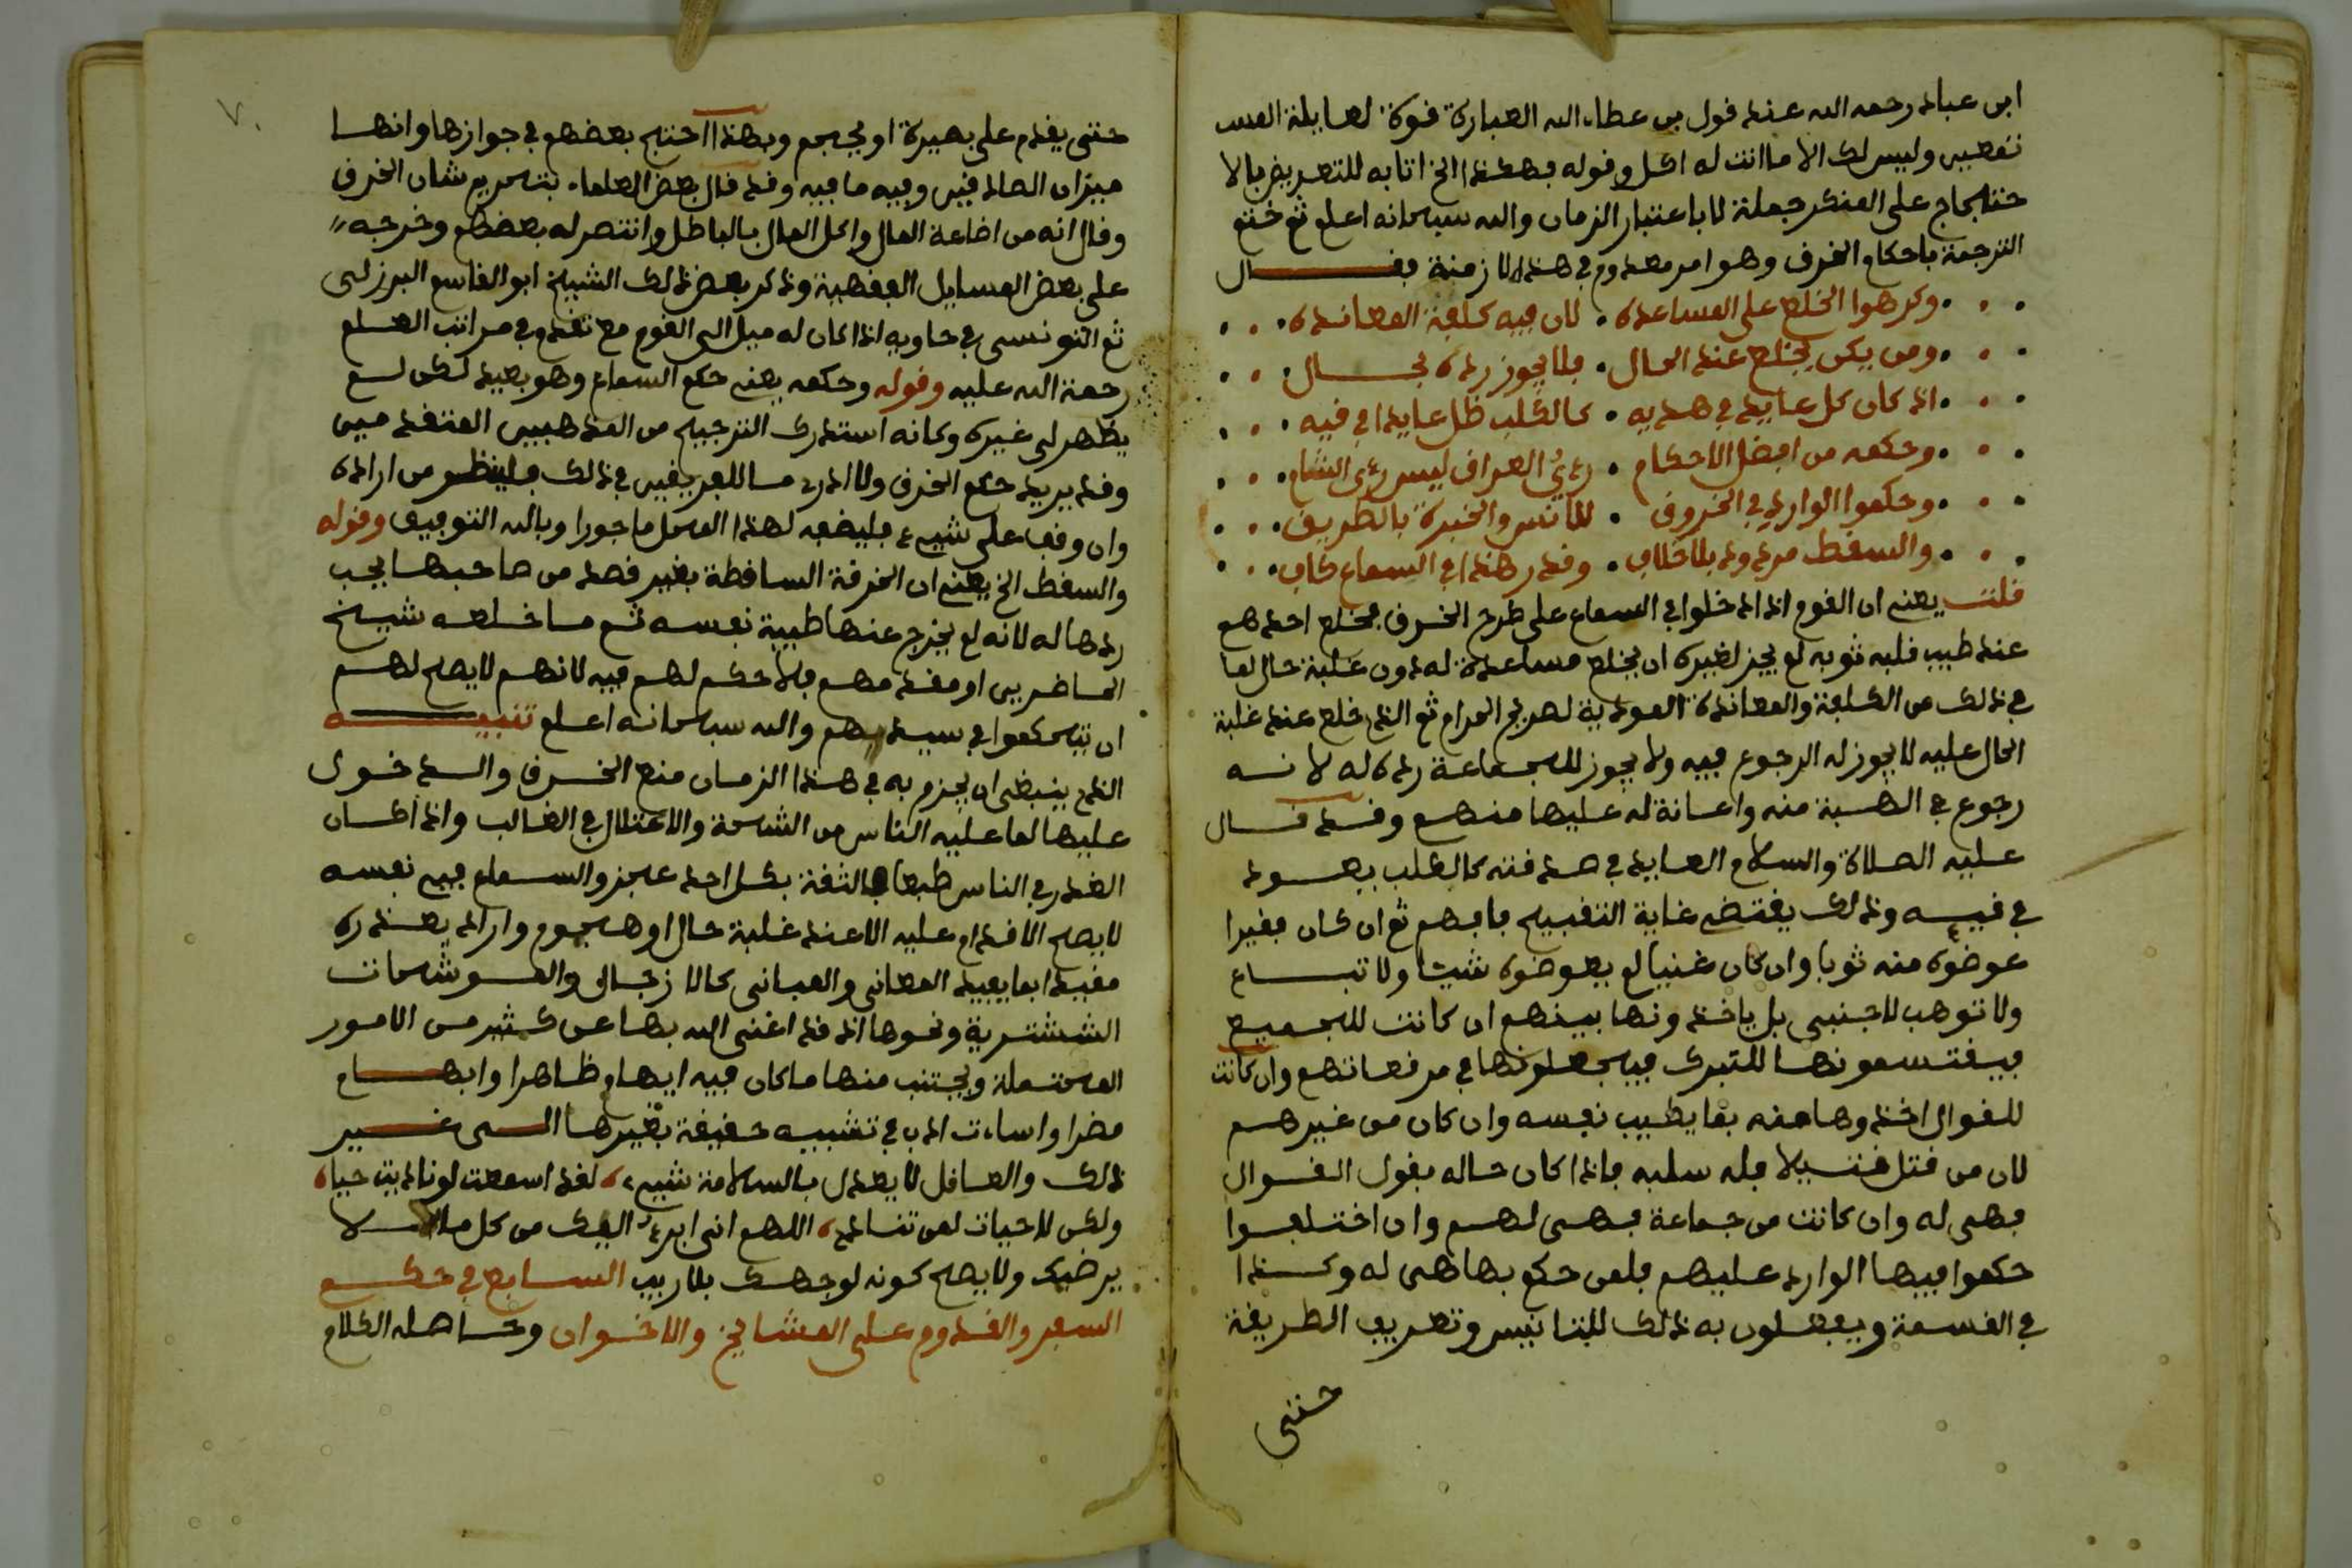 ابن عباد رحمه الله عند قول بن عطاء الله العبارة قوة لعايلة المس
تمعين وليس لك الا ما انت له اكل وقوله فهكذا الخ اتا به للتعريض بالا
حتجاج على المنكر جملة لا باعتبار الزمان والله سبحانه اعلم ثم ختم
الترجمة باحكام الخرق وهو امر معدوم في هذه الازمنة فقـــال
وكرهوا الخلع على المساعدة . لان فيه كلفة المعاندة
ومن يكن يخلع عند الحال . فلا يجوز رده بحـــال
اذ كان كل عايد في هديه . كالكلب ظل عايدا في قيه
وحكمه من افضل الاحكام . رءي العراق ليس رءي الشام
وحكموا الوارد في الخروق . للانس والخبرة بالطريق
والسقط مردود بلا خلاف . وقدر هذا في السماع كاف
قلت يعني ان القوم اذا دخلوا في السماع على طرح الخرق فخلع احدهم
عند طيب قلبه ثوبه لم يجز لغيره ان يخلع مساعدة له دون غلبة حال لما
في ذلك من الكلفة والمعاندة المودية لهرج المرام ثم الذي خلع عند غلبة
الحال عليه لا يجوز له الرجوع فيه ولا يجوز للجماعة رده له لانـــه
رجوع في الهبة منه واعانة له عليها منهم وقد قـــال
عليه الصلاة والسلام العايد في صدقته كالكلب يعـــود
في قيـــه وذلك يقتضي غاية التقبيح فافهم ثم ان كان فقيرا
عوضوه منه ثوبا وان كان غنيا لم يعوضوه شيئا ولا تبـــاع
ولا توهب لاجنبي بل ياخذونها بينهم ان كانت للجميع
فيقتسمونها للتبرك فيجعلونها في مرقعاتهم وان كانت
للقوال اخذوها منه بما يطيب نفسه وان كان من غيرهـــم
لان من قتل قتيلا فله سلبه فاذا كان حاله بقول القـــوال
فهي له وان كانت من جماعة فهـــي لهـــم وان اختـــلفـــوا
حكموا فيها الوارد عليهم فلمن حكم بها فهي له وكـــذا
في القسمة ويفعلون به ذلك للتانيس وتعريف الطريقة
حتى
٧٠
حتى يقدم على بصيرة او يحجم وبهذا احتج بعضهم في جوازها وانهـــا
ميزان الصادقين وفيه ما فيه وقد قال بعض العلماء بتحريم شان الخرق
وقال انه من اضاعة المال واكل المال بالباطل وانتصر له بعضهم وخرجه
على بعض المسايل الفقهية وذكر بعض ذلك الشيخ ابو القاسم البرزلي
ثم التونسي في حاويه اذا كان له ميل الى القوم مع تقدم في مراتب العلم
رحمة الله عليه وقوله وحكمه يعني حكم السماع وهو بعيد لكن لـــم
يظهر لي غيره وكانه استدرك الترجيح من المذهبين المتقدمين
وقد يريد حكم الخرق ولا ادري ما للفريقين في ذلك فلينظـــر من اراده
وان وقف على شيء فليضعه لهذا المحل ماجورا وبالله التوفيق وقوله
والسقط الخ يعني ان الخرقة الساقطة بغير قصد من صاحبهـــا يجب
ردها له لانه لم يخرج عنها طيبة نفسه ثم ما خـــلعـــه شيـــخ
الحاضرين او مقدمهـــم فلا حكم لهـــم فيه لانهـــم لا يصح لهـــم
ان يتحكموا في سيدهم والله سبحانه اعـــلم تنبيـــه
الذي ينبغي ان يجزم به في هذا الزمـــان منع الخـــرق والـــدخـــول
عليها لما عليه الناس من الشحة والاعتلال في الغالب واذا كـــان
الغدر في الناس طبعا فالثقة بكل احد عجز والســـماع فيه نفسه
لا يصح الاقدام عليه الا عند غلبة حال او هجـــوم واراد يعـــذره
مقيدا بما يفيد المعاني والمباني كالازجال والمـــوشحات
الششـــترية ونحوها اذ قد اغنى الله بهـــا عن كـــثير مـــن الامـــور
المحتملة ويجتنب منها ما كان فيه ايهام ظـــاهرا وابهـــام
مضرا واساءت ادب في تشبيه حقيقة بغيرهـــا الـــى غـــير
ذلك والعـــاقل لا يعدل بالسلامة شيء لقد اسمعت لو ناديت حيا
ولكن لا حيات لمن تنادي اللهـــم اني ابرء اليك من كل مـــا لا
يرضيك ولا يصح كونه لوجهـــك بلا ريب الســـابع في حكـــم
السفر والقـــدوم على المشايخ والاخـــوان وحـــاصله الكلام